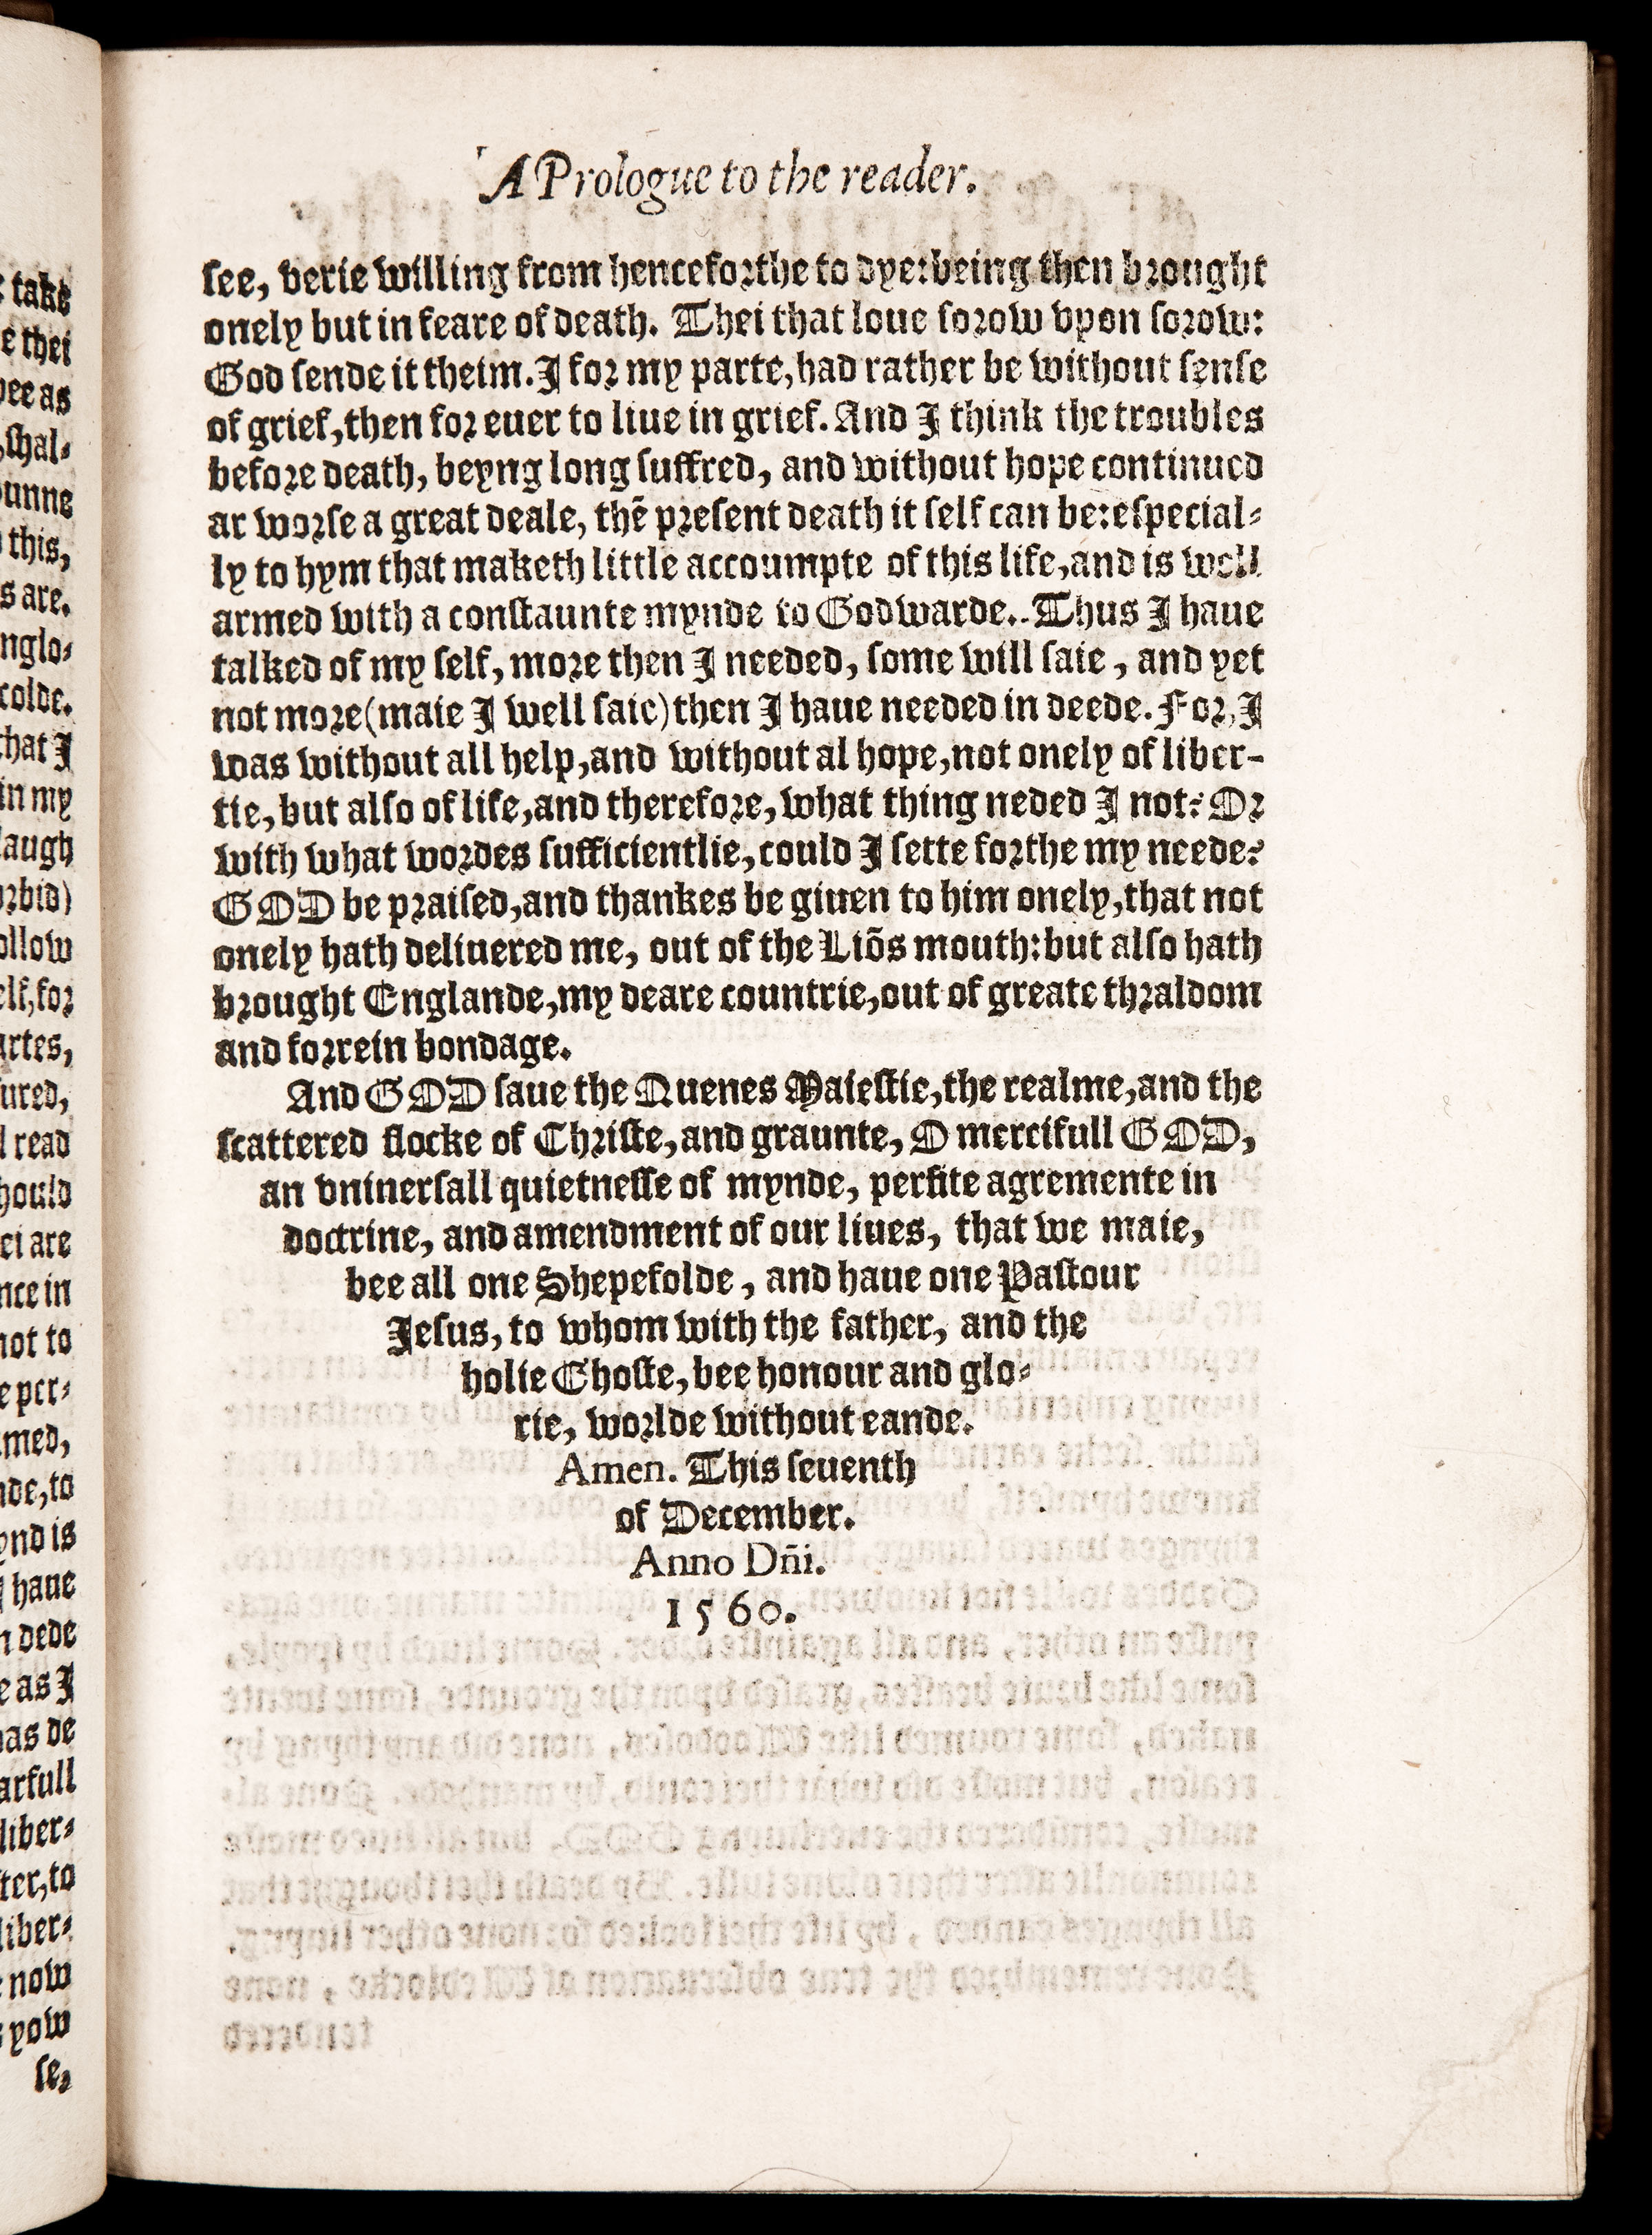 A Prologue to the reader.
see, verie willing from henceforthe to dye: being then brought
onely but in feare of death. Thei that loue sorow vpon sorow:
God sende it theim. I for my parte, had rather be without sense
of grief, then for euer to liue in grief. And I think the troubles
before death, beyng long suffred, and without hope continued
ar worse a great deale, thē present death it self can be: especial-
ly to hym that maketh little accoumpte of this life, and is well
armed with a constaunte mynde to Godwarde. Thus I haue
talked of my self, more then I needed, some will saie, and yet
not more (maie I well saie) then I haue needed in deede. For, I
was without all help, and without al hope, not onely of liber-
tie, but also of life, and therefore, what thing neded I not? Or
with what wordes sufficientlie, could I sette forthe my neede?
GOD be praised, and thankes be giuen to him onely, that not
onely hath deliuered me, out of the Liōs mouth: but also hath
brought Englande, my deare countrie, out of greate thraldom
and forrein bondage.
And GOD saue the Quenes Maiestie, the realme, and the
scattered flocke of Christe, and graunte, O mercifull GOD,
an vninersall quietnesse of mynde, perfite agremente in
doctrine, and amendment of our liues, that we maie,
bee all one Shepefolde, and haue one Pastour
Jesus, to whom with the father, and the
holie Ghoste, bee honour and glo-
rie, worlde without eande.
Amen. This seuenth
of December.
Anno Dñi.
1560.
take
e thei
as
shal-
unne
this,
s are.
nglo-
colde.
that I
in my
laugh
orbid)
ollow
elf, for
artes,
ured,
l read
hould
ei are
nce in
not to
e per-
med,
nde, to
ynd is
I haue
n dede
e as I
as de
arfull
liber-
ter, to
liber-
now
yow
se,